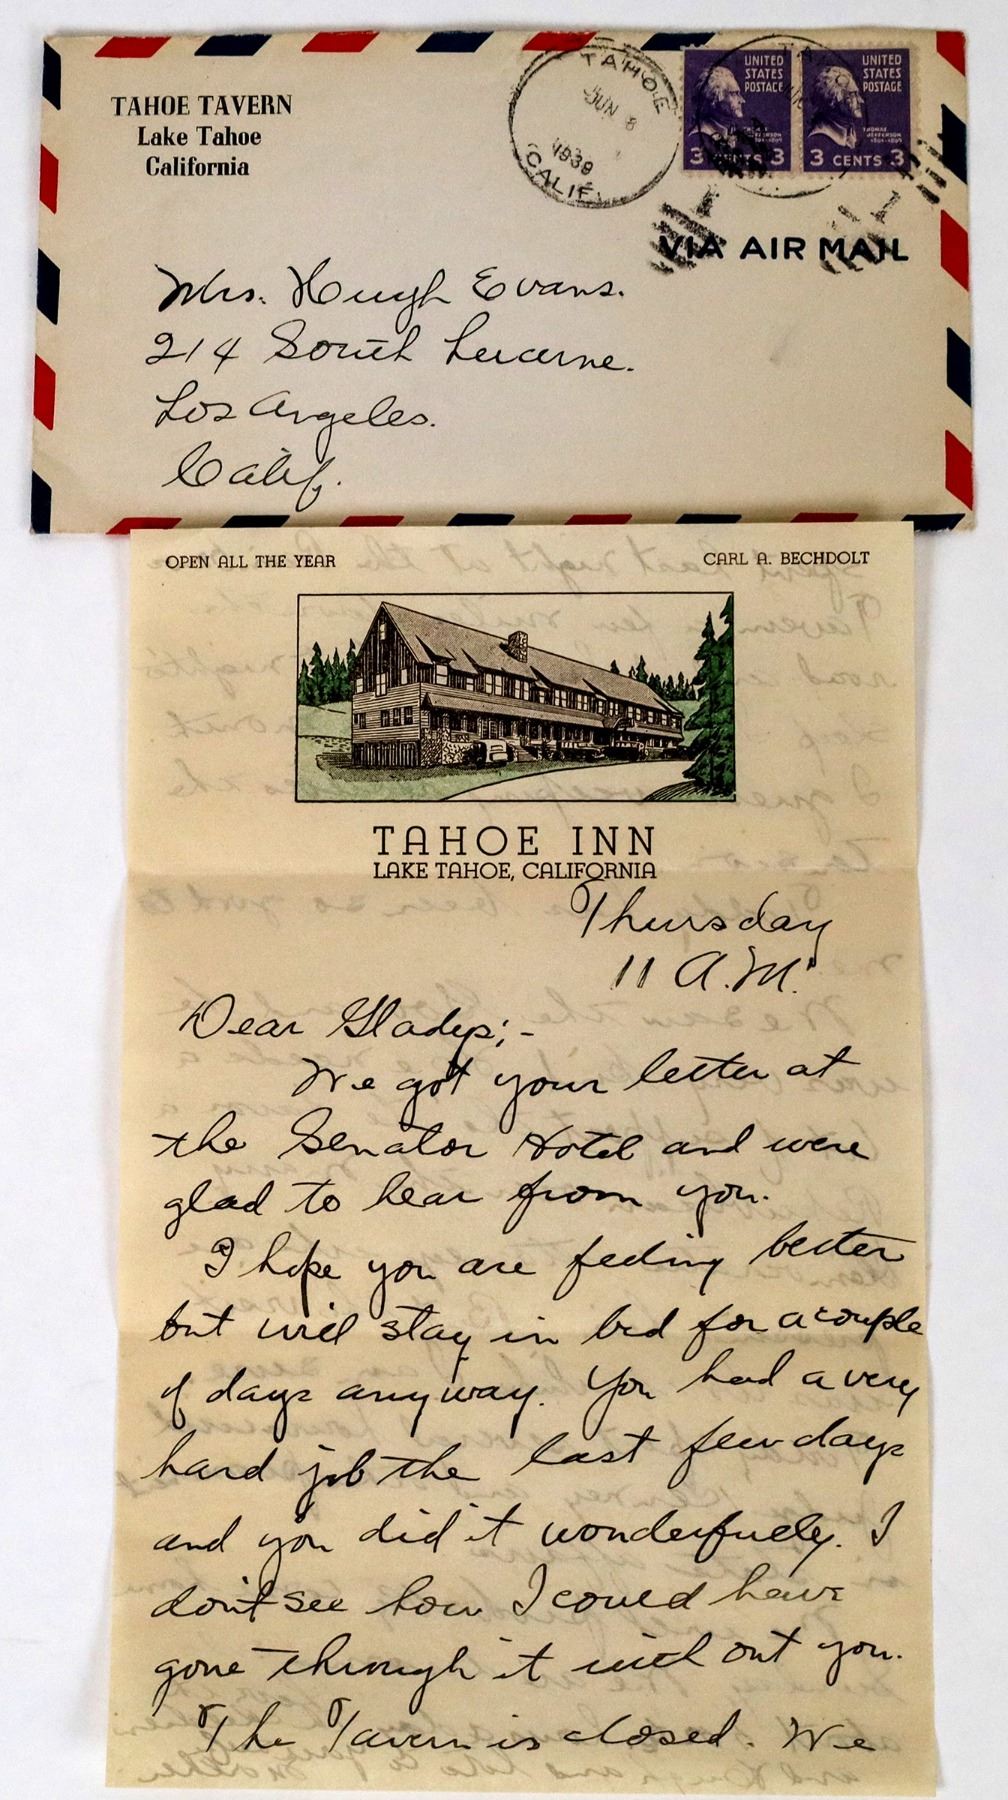 TAHOE TAVERN
Lake Tahoe
California
TAHOE
JUN 8
1939
CALIF.
UNITED
STATES
POSTAGE
3 CENTS 3
UNITED
STATES
POSTAGE
THOMAS
JEFFERSON
3 CENTS 3
VIA AIR MAIL
Mrs. Hugh Evans.
214 South Lucerne.
Los Angeles.
Calif.
OPEN ALL THE YEAR
CARL A. BECHDOLT
TAHOE INN
LAKE TAHOE, CALIFORNIA
Thursday
11 A.M.
Dear Gladys;-
We got your letter at
the Senator Hotel and were
glad to hear from you.
I hope you are feeling better
but will stay in bed for a couple
of days anyway. You had a very
hard job the last few days
and you did it wonderfully. I
don't see how I could have
gone through it with out you.
The Tavern is closed. We